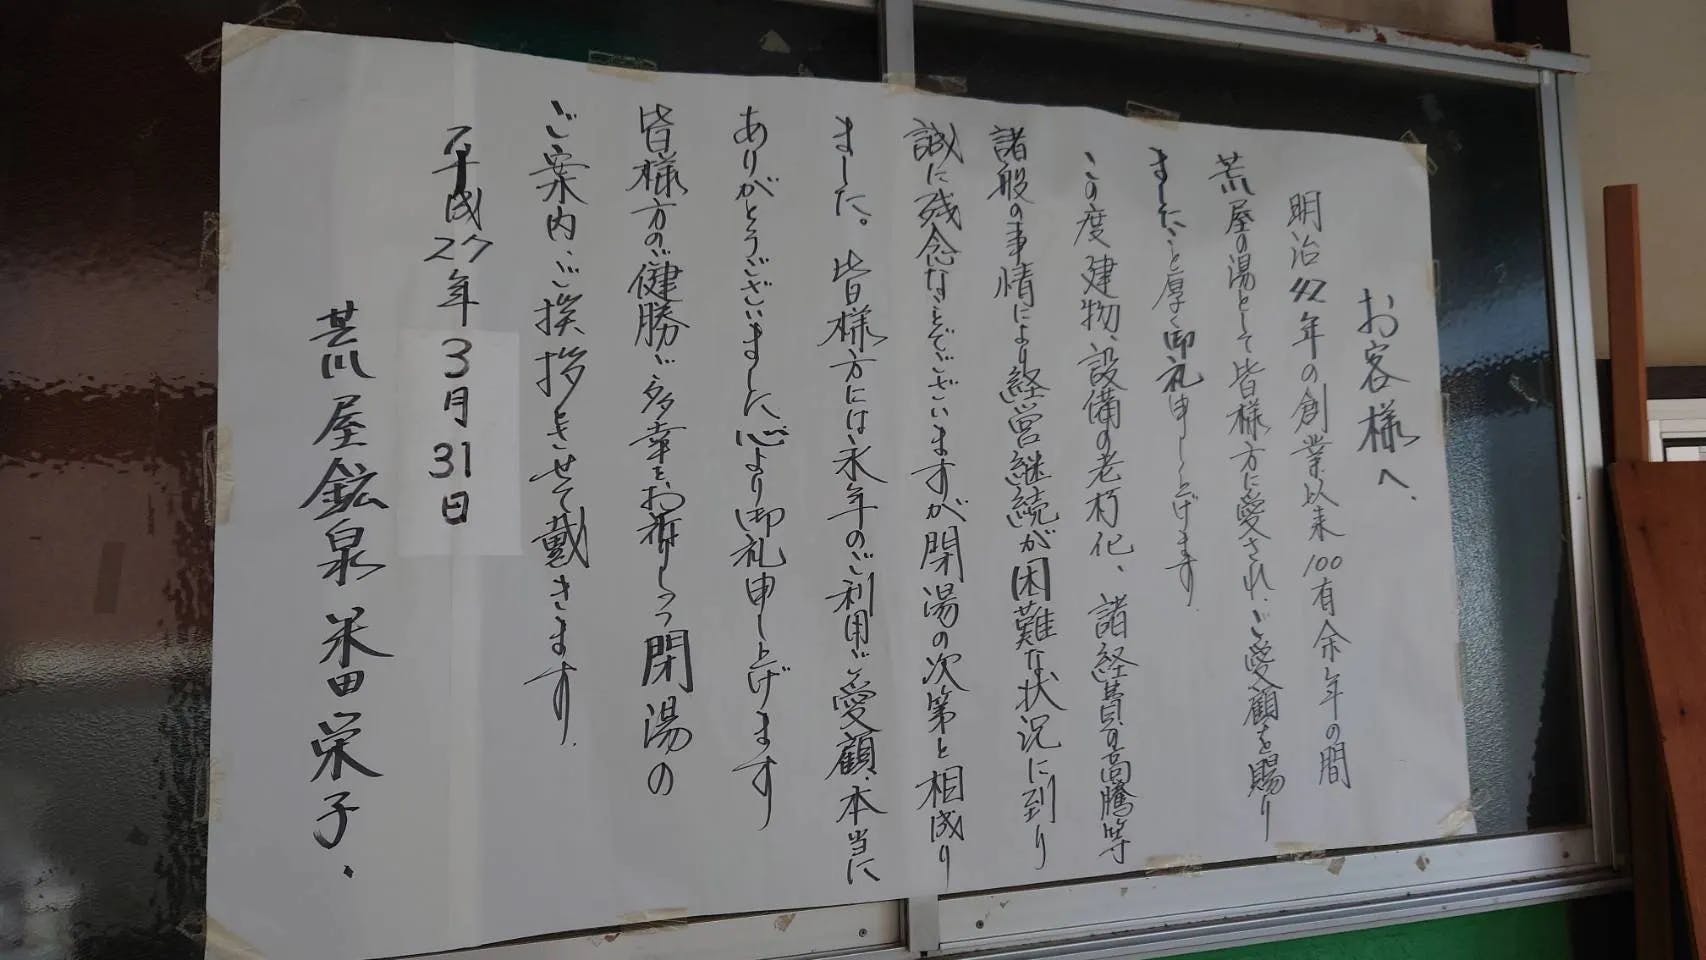 お客様へ、
明治42年の創業以来100有余年の間
荒屋の湯として皆様方に愛されご愛顧を賜り
ましたこと厚く御礼申し上げます。
この度建物、設備の老朽化、諸経費の高騰等
諸般の事情により経営継続が困難な状況に到り
誠に残念なことでございますが閉湯の次第と相成り
ました。皆様方には永年のご利用ご愛顧、本当に
ありがとうございました心より御礼申し上げます
皆様方のご健勝ご多幸をお祈りしつつ閉湯の
ご案内、ご挨拶とさせて戴きます。
平成27年3月31日
荒屋鉱泉 米田栄子、